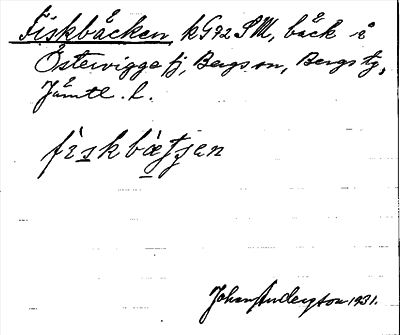 Fiskbäcken kG92SM, bäck i
Östervigge fj, Bergs sn, Bergs tg,
Jämtl. l.
fìskbæ̀tjen
Johan Anderzson 1931.